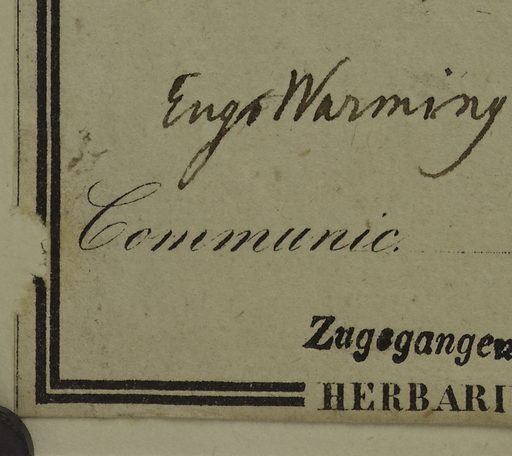 Eug. Warming
Communic.
Zugegangen
HERBARI